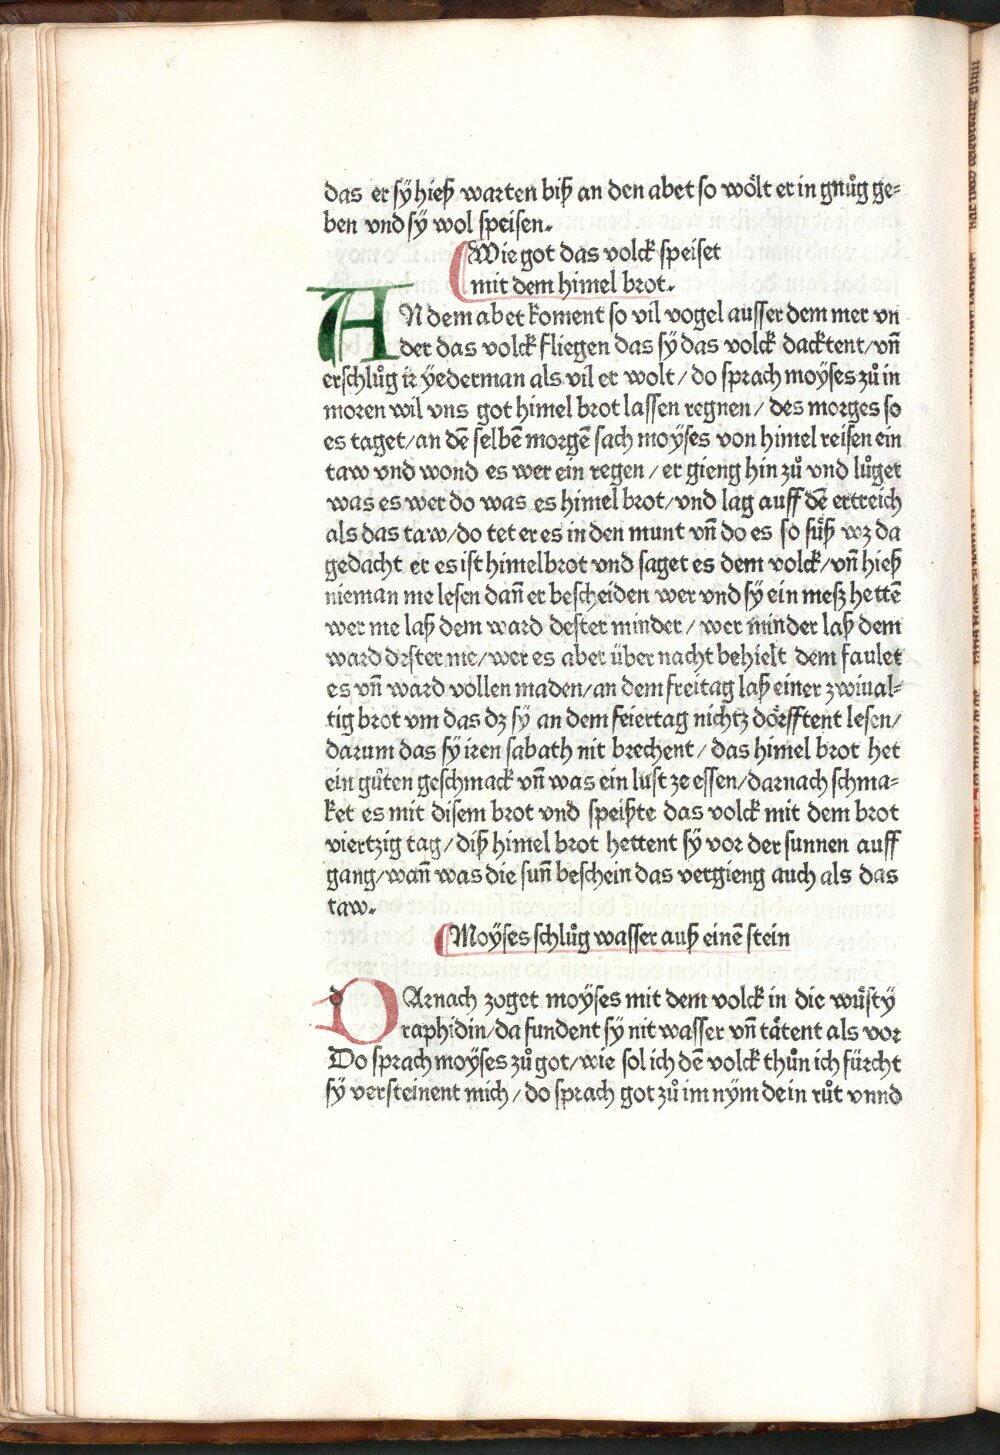 das er sÿ hieß warten biß an den abet so woͤlt er in gnuͦg ge⸗
ben vnd sÿ wol speisen.
Wie got das volck speiset
mit dem himel brot.
AN dem abet koment so vil vogel ausser dem mer vn
der das volck fliegen das sÿ das volck dacktent/vn̄
erschluͦg ir ÿederman als vil er wolt/do sprach moÿses zuͦ in
moren wil vns got himel brot lassen regnen/des morges so
es taget/an dē selbē morgē sach moÿses von himel reisen ein
taw vnd wond es wer ein regen/er gieng hin zuͦ vnd luͦget
was es wer do was es himel brot/vnd lag auff dē ertreich
als das taw/do tet er es in den munt vn̄ do es so suͤß wz da
gedacht er es ist himelbrot vnd saget es dem volck/vn̄ hieß
nieman me lesen dan̄ er bescheiden wer vnd sÿ ein mesz hettē
wer me laß dem ward dester minder/wer minder laß dem
ward dester me/wer es aber über nacht behielt dem faulet
es vn̄ ward vollen maden/an dem freitag laß einer zwiual⸗
tig brot vm das dz sÿ an dem feiertag nichtz doͤrfftent lesen/
darum das sÿ iren sabath nit brechent/das himel brot het
ein guͦten geschmack vn̄ was ein lust ze essen/darnach schma⸗
ket es mit disem brot vnd speißte das volck mit dem brot
viertzig tag/diß himel brot hettent sÿ vor der sunnen auff
gang/wan̄ was die sun̄ beschein das vergieng auch als das
taw.
Moÿses schluͦg wasser auß einē stein
DArnach zoget moÿses mit dem volck in die wuͤsty
raphidin/da fundent sÿ nit wasser vn̄ taͤtent als vor
Do sprach moÿses zuͦ got/wie sol ich dē volck thuͦn ich fürcht
sÿ versteinent mich/do sprach got zuͦ im nÿm dein ruͦt vnnd